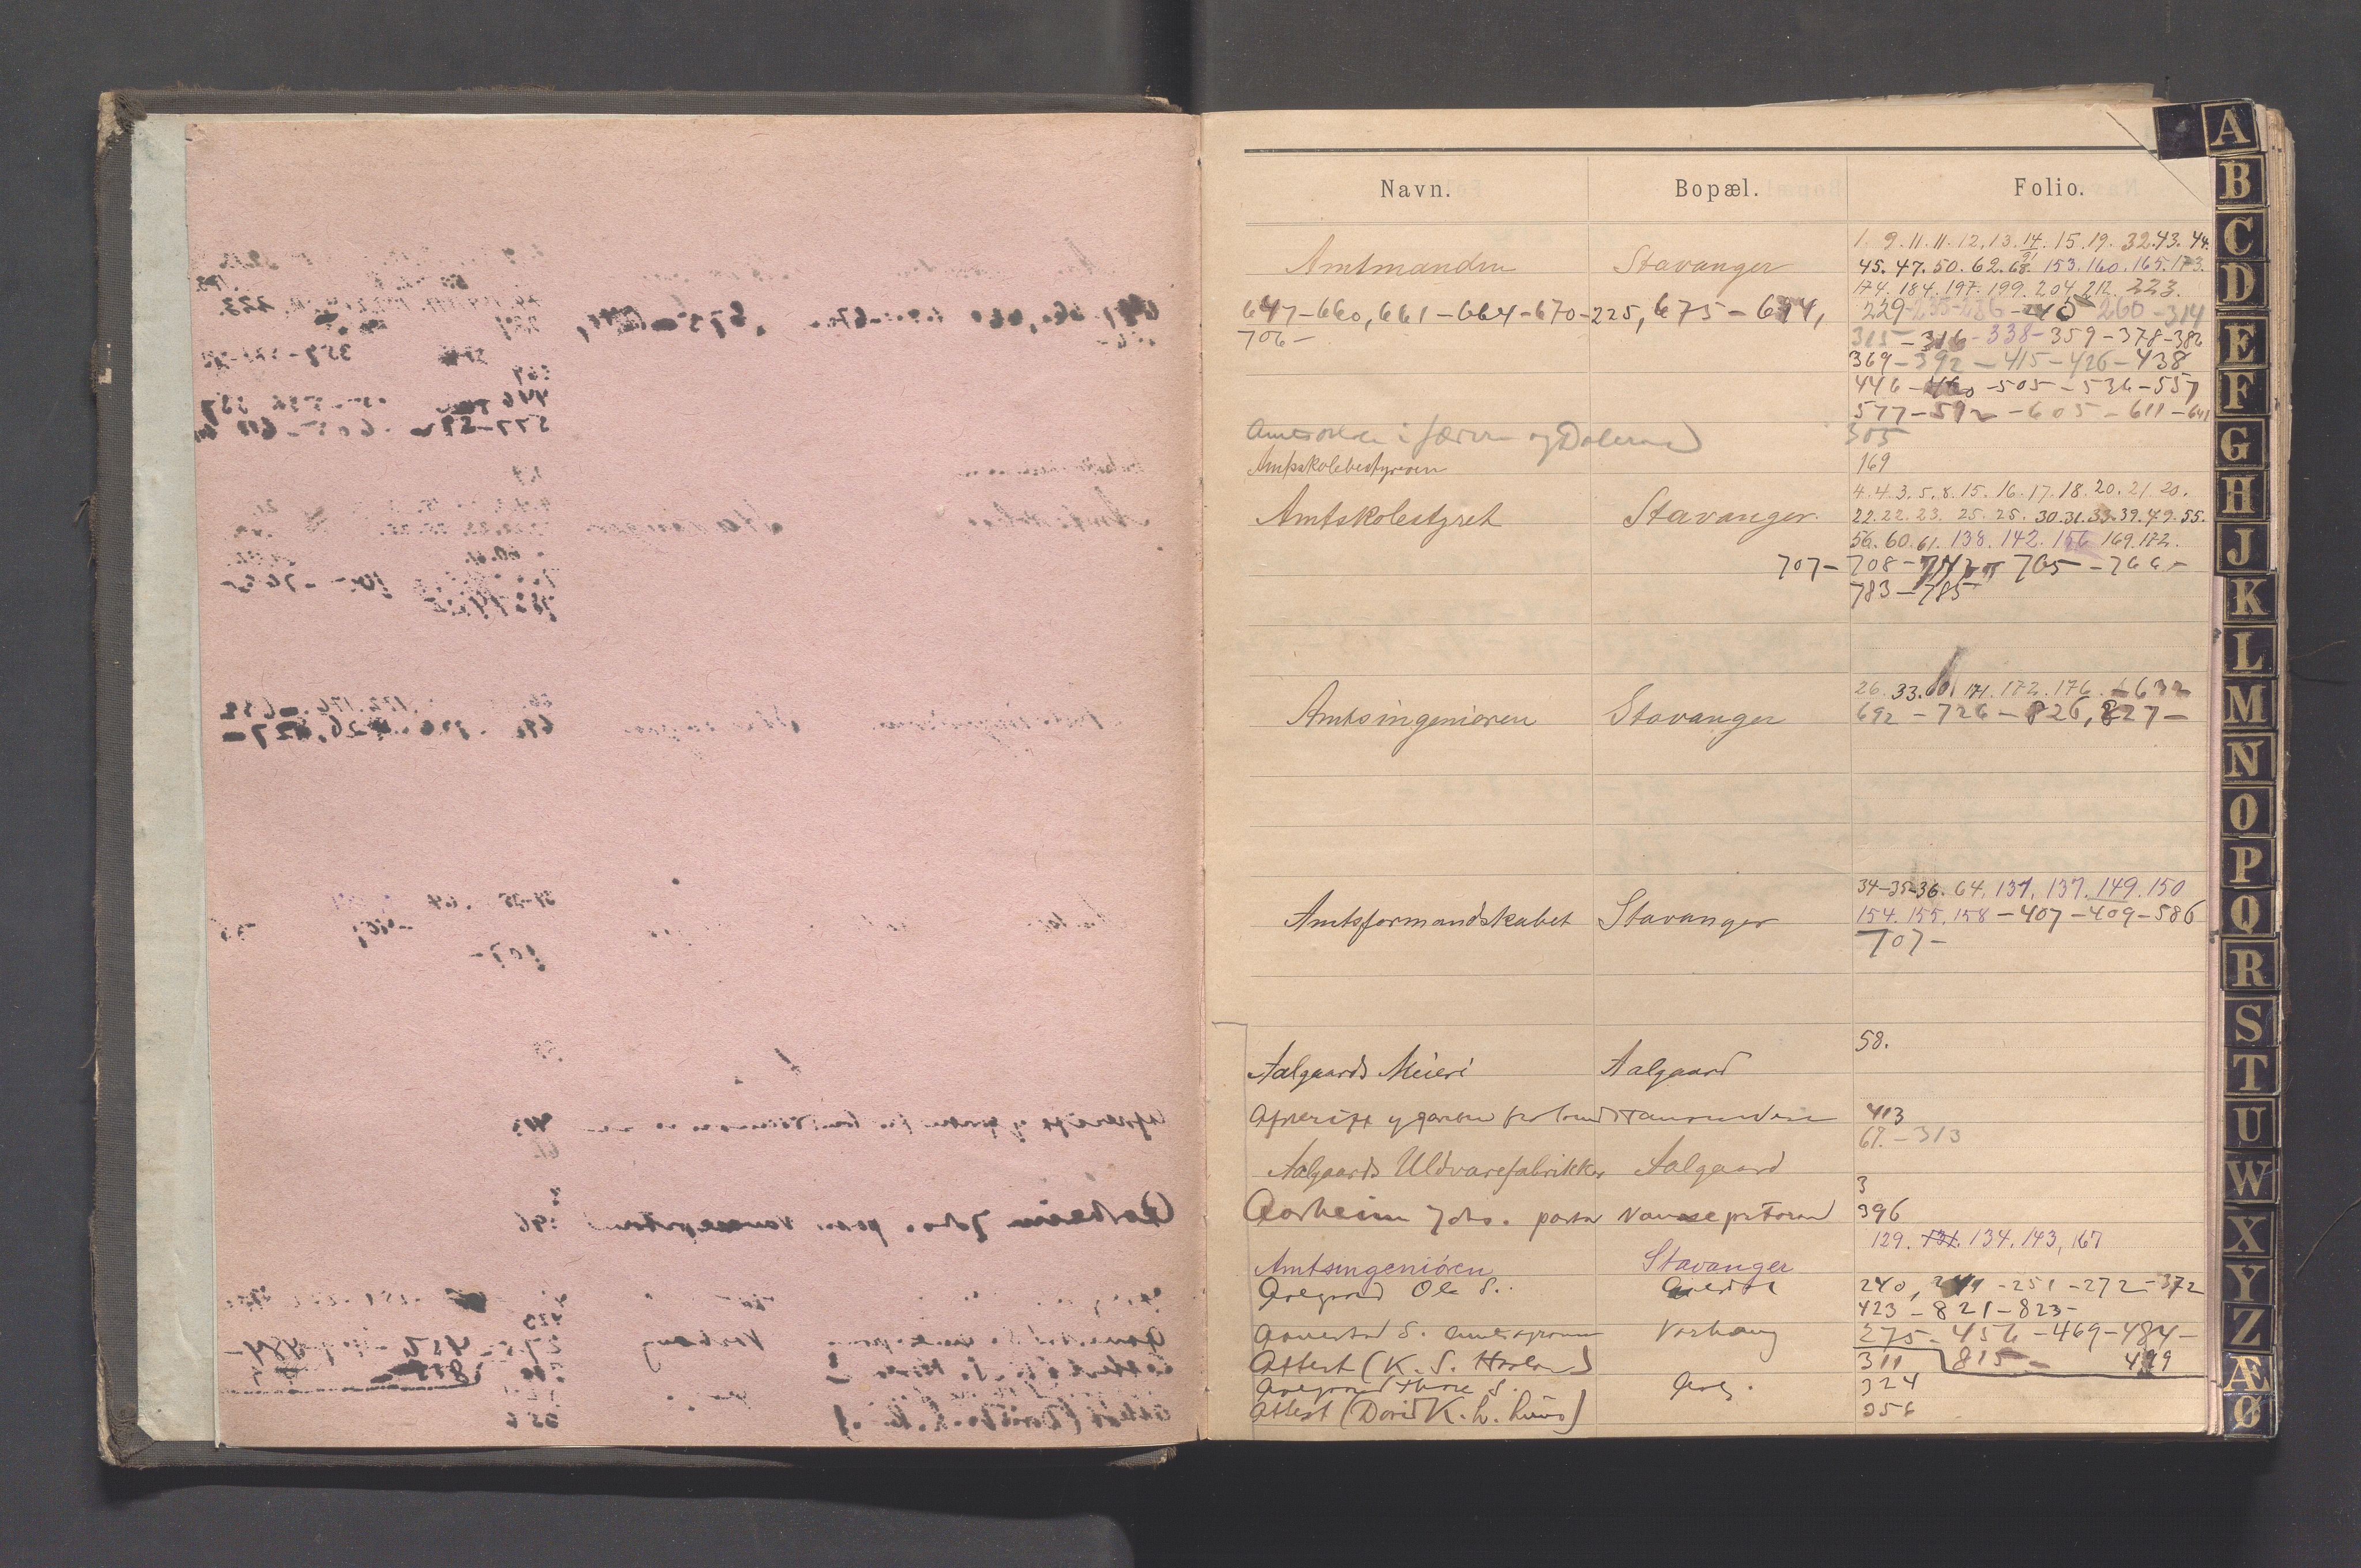 Navn. Bopæl. Folio.
1. 9. 11. 11. 12. 13. 14. 15. 19. 32. 43. 44.
Amtmanden Stavanger 45. 47. 50. 62. 68. 153. 160. 165. 173.
174. 184. 197. 199. 204. 212. 223.
647-660, 661-664-670-225, 673-674, 229-235-236-240-260-314
706- 315-316-338-359-378-382
369-392-415-426-438
446-460-505-536-557
577-592-605-611-641
i Jæren og Dalerne 305
Amtskolebestyreren 169
4. 4. 3. 5. 8. 15. 16. 17. 18. 20. 21. 20.
Amtskolestyret Stavanger. 22. 22. 23. 25. 25. 30. 31. 33. 39. 49. 55.
56. 60. 61. 138. 142. 156. 169. 172.
707-708- 765-766-
783-785
26. 33. 60. 171. 172. 176. -632
Amtsingeniøren Stavanger 692-726-826, 827-
34-35-36. 64, 131, 137. 149. 150
Amtsformandskabet Stavanger 154. 155. 158-407-409-586
707-
58.
Aalgaards Meieri Aalgaard
413
69.-313
Aalgaards Uldvarefabrikker Aalgaard
3
396
129. 131. 134. 143, 167
Amtsingeniøren Stavanger
Ole S. 240, -251-272-372
423-821-823-
S. Varhaug 275-456-469-484-
Attest (K. S. 311 815- 499
S. 324
Attest (David K. L. 356
A
B
C
D
E
F
G
H
J
K
L
M
N
O
P
Q
R
S
T
U
W
X
Y
Z
Æ
Ø